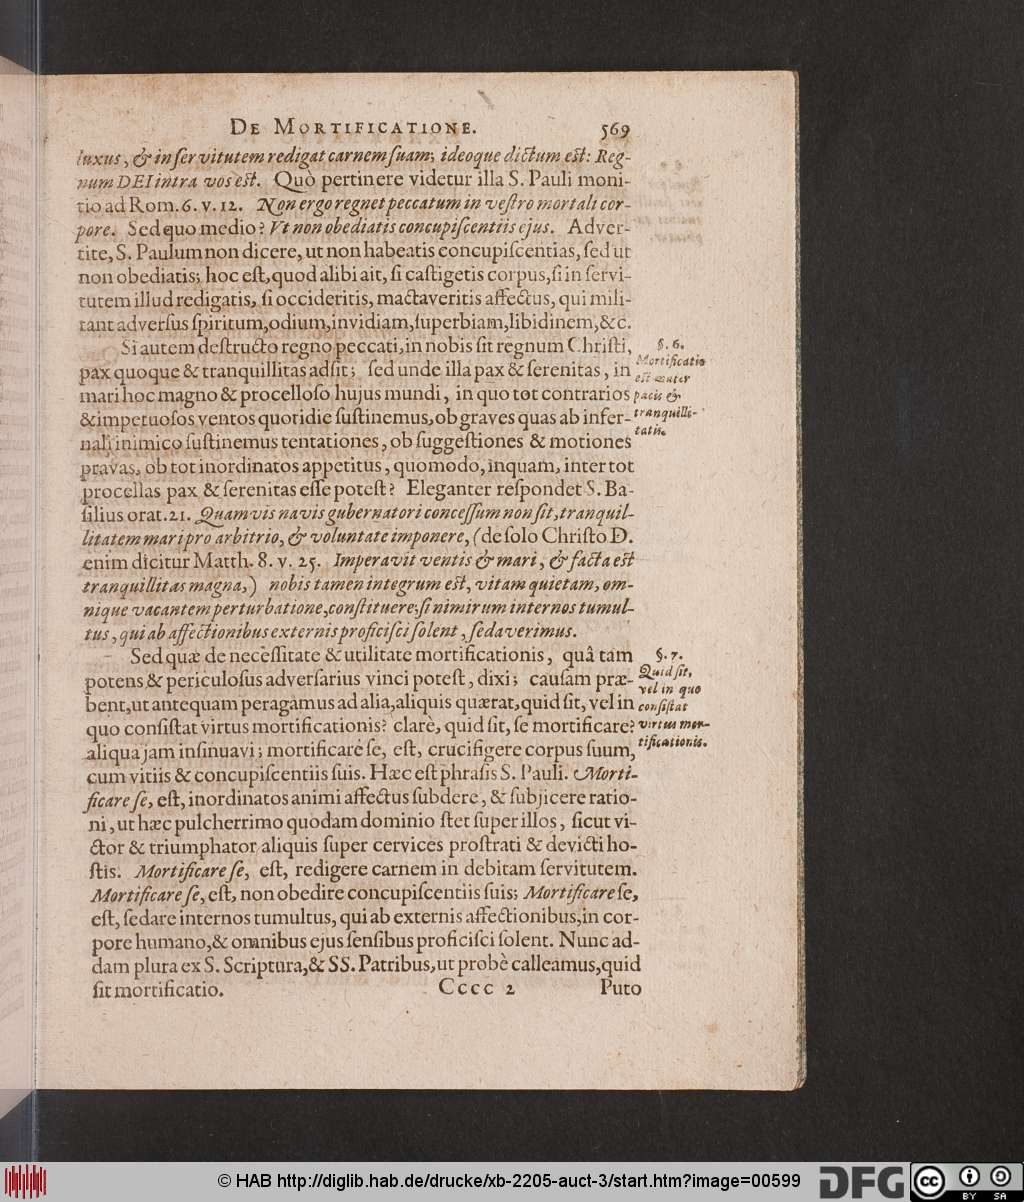 DE MORTIFICATIONE. 569
luxus, & in servitutem redigat carnem suam; ideoque dictum est: Reg-
num DEI intra vos est. Quò pertinere videtur illa S. Pauli moni-
tio ad Rom. 6. v. 12. Non ergo regnet peccatum in vestro mortali cor-
pore. Sed quo medio? Ut non obediatis concupiscentiis ejus. Adver-
tite, S. Paulum non dicere, ut non habeatis concupiscentias, sed ut
non obediatis; hoc est, quod alibi ait, si castigetis corpus, si in servi-
tutem illud redigatis, si occideritis, mactaveritis affectus, qui mili-
tant adversus spiritum, odium, invidiam, superbiam, libidinem, &c.
Si autem destructo regno peccati, in nobis sit regnum Christi,
pax quoque & tranquillitas adsit; sed unde illa pax & serenitas, in
mari hoc magno & procelloso hujus mundi, in quo tot contrarios
& impetuosos ventos quotidie sustinemus, ob graves quas ab infer-
nali inimico sustinemus tentationes, ob suggestiones & motiones
pravas, ob tot inordinatos appetitus, quomodo, inquam, inter tot
procellas pax & serenitas esse potest? Eleganter respondet S. Ba-
silius orat. 21. Quamvis navis gubernatori concessum non sit, tranquil-
litatem mari pro arbitrio, & voluntate imponere, (de solo Christo D.
enim dicitur Matth. 8. v. 25. Imperavit ventis & mari, & facta est
tranquillitas magna,) nobis tamen integrum est, vitam quietam, om-
nique vacantem perturbatione, constituere; si nimirum internos tumul-
tus, qui ab affectionibus externis proficisci solent, sedaverimus.
§. 6.
Mortificatio
est mater
pacis &
tranquilli-
tatis.
Sed quæ de necessitate & utilitate mortificationis, quâ tam
potens & periculosus adversarius vinci potest, dixi; causam præ-
bent, ut antequam peragamus ad alia, aliquis quærat, quid sit, vel in
quo consistat virtus mortificationis? clarè, quid sit, se mortificare?
aliqua jam insinuavi; mortificare se, est, crucifigere corpus suum,
cum vitiis & concupiscentiis suis. Hæc est phrasis S. Pauli. Morti-
ficare se, est, inordinatos animi affectus subdere, & subjicere ratio-
ni, ut hæc pulcherrimo quodam dominio stet super illos, sicut vi-
ctor & triumphator aliquis super cervices prostrati & devicti ho-
stis. Mortificare se, est, redigere carnem in debitam servitutem.
Mortificare se, est, non obedire concupiscentiis suis; Mortificare se,
est, sedare internos tumultus, qui ab externis affectionibus, in cor-
pore humano, & omnibus ejus sensibus proficisci solent. Nunc ad-
dam plura ex S. Scriptura, & SS. Patribus, ut probè calleamus, quid
sit mortificatio.
§. 7.
Quid sit,
vel in quo
consistat
virtus mor-
tificationis.
Cccc 2 Puto
© HAB http://diglib.hab.de/drucke/xb-2205-auct-3/start.htm?image=00599
DFG
cc BY SA